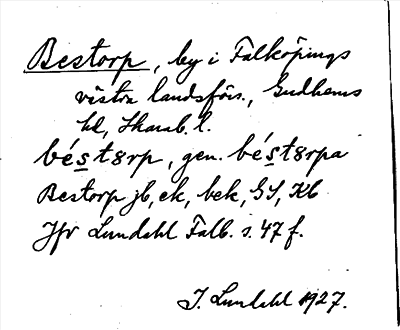 Bestorp, by i Falköpings
västra landsförs., Gudhems
hd, Skarab. l.
bést8rp, gen. bést8rpa
Bestorp jb, ek, bek, GS, Kb
Jfr Lundahl Falb. s. 47 f.
I. Lundahl 1927.